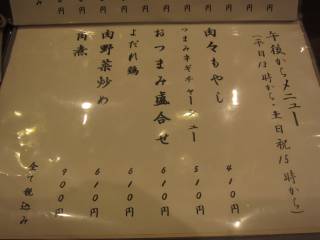 午後からメニュー
(平日13時から・土日祝15時から)
肉々もやし 410円
つまみネギチャーシュー 510円
おつまみ盛合せ 610円
よだれ鶏 610円
肉野菜炒め 610円
角煮 900円
全て税込み